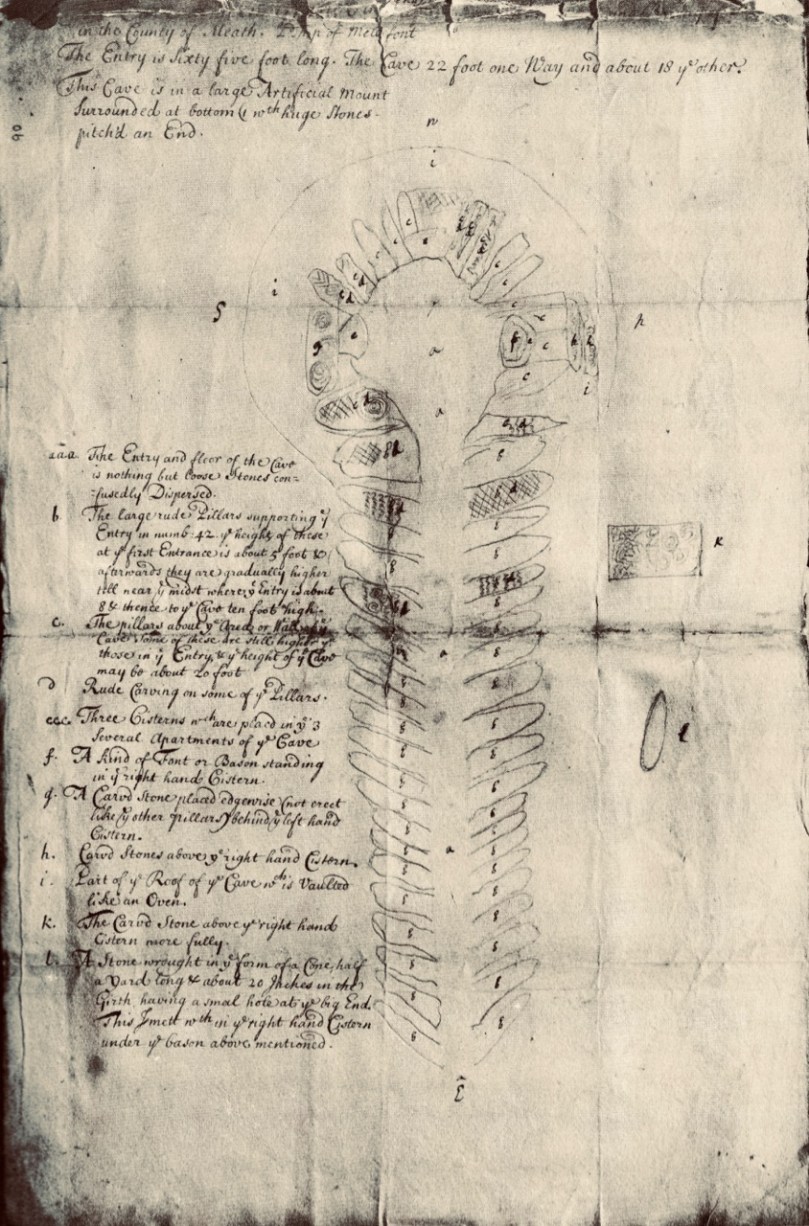 in the County of Meath. Ldsp of Mellifont
The Entry is Sixty five foot long. The Cave 22 foot one Way and about 18 yᵉ other.
This Cave is in a large Artificial Mount
Surrounded at bottom wᵗʰ huge Stones
pitch'd an End.
n
i
i
S
h
a
a
aaa The Entry and floor of the Cave
is nothing but loose Stones con-
-fusedly Dispersed.
b. The large rude Pillars supporting yᵉ
Entry in numb: 42 yᵉ height of these
at yᵉ first Entrance is about 5 foot &
afterwards they are gradually higher
till near yᵉ midst where yᵉ Entry is about
8 & thence to yᵉ Cave ten foot high.
c. The pillars about yᵉ Area or
Cave some of these are still higher yⁿ
those in yᵉ Entry, & yᵉ height of yᵉ Cave
may be about 20 foot
d Rude Carving on some of yᵉ Pillars.
eee Three Cisterns wᶜʰ are placd in yᵉ 3
Several Apartments of yᵉ Cave
f. A kind of Font or Bason standing
in yᵉ right hand Cistern.
g. A Carvd Stone placed edgewise (not erect
like yᵉ other pillars) behind yᵉ left hand
Cistern.
h. Carvd Stones above yᵉ right hand Cistern.
i. Part of yᵉ Roof of yᵉ Cave wᶜʰ is Vaulted
like an Oven.
k. The Carvd Stone above yᵉ right hand
Cistern more fully.
l. A Stone wrought in yᵉ form of a Cone, half
a Yard long & about 20 Inches in the
Girth, having a smal hole at yᵉ big End.
This I mett wᵗʰ in yᵉ right hand Cistern
under yᵉ bason above mentioned.
k
l
E